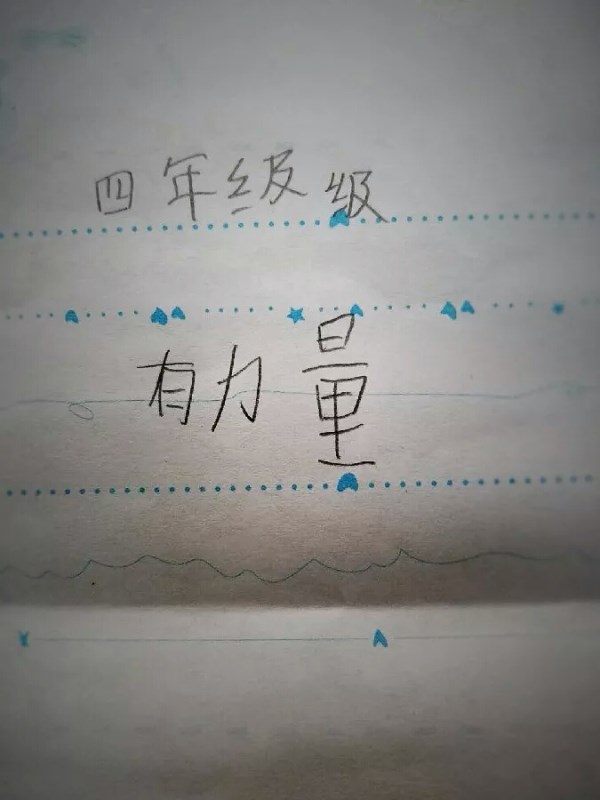 四年级级
有力量